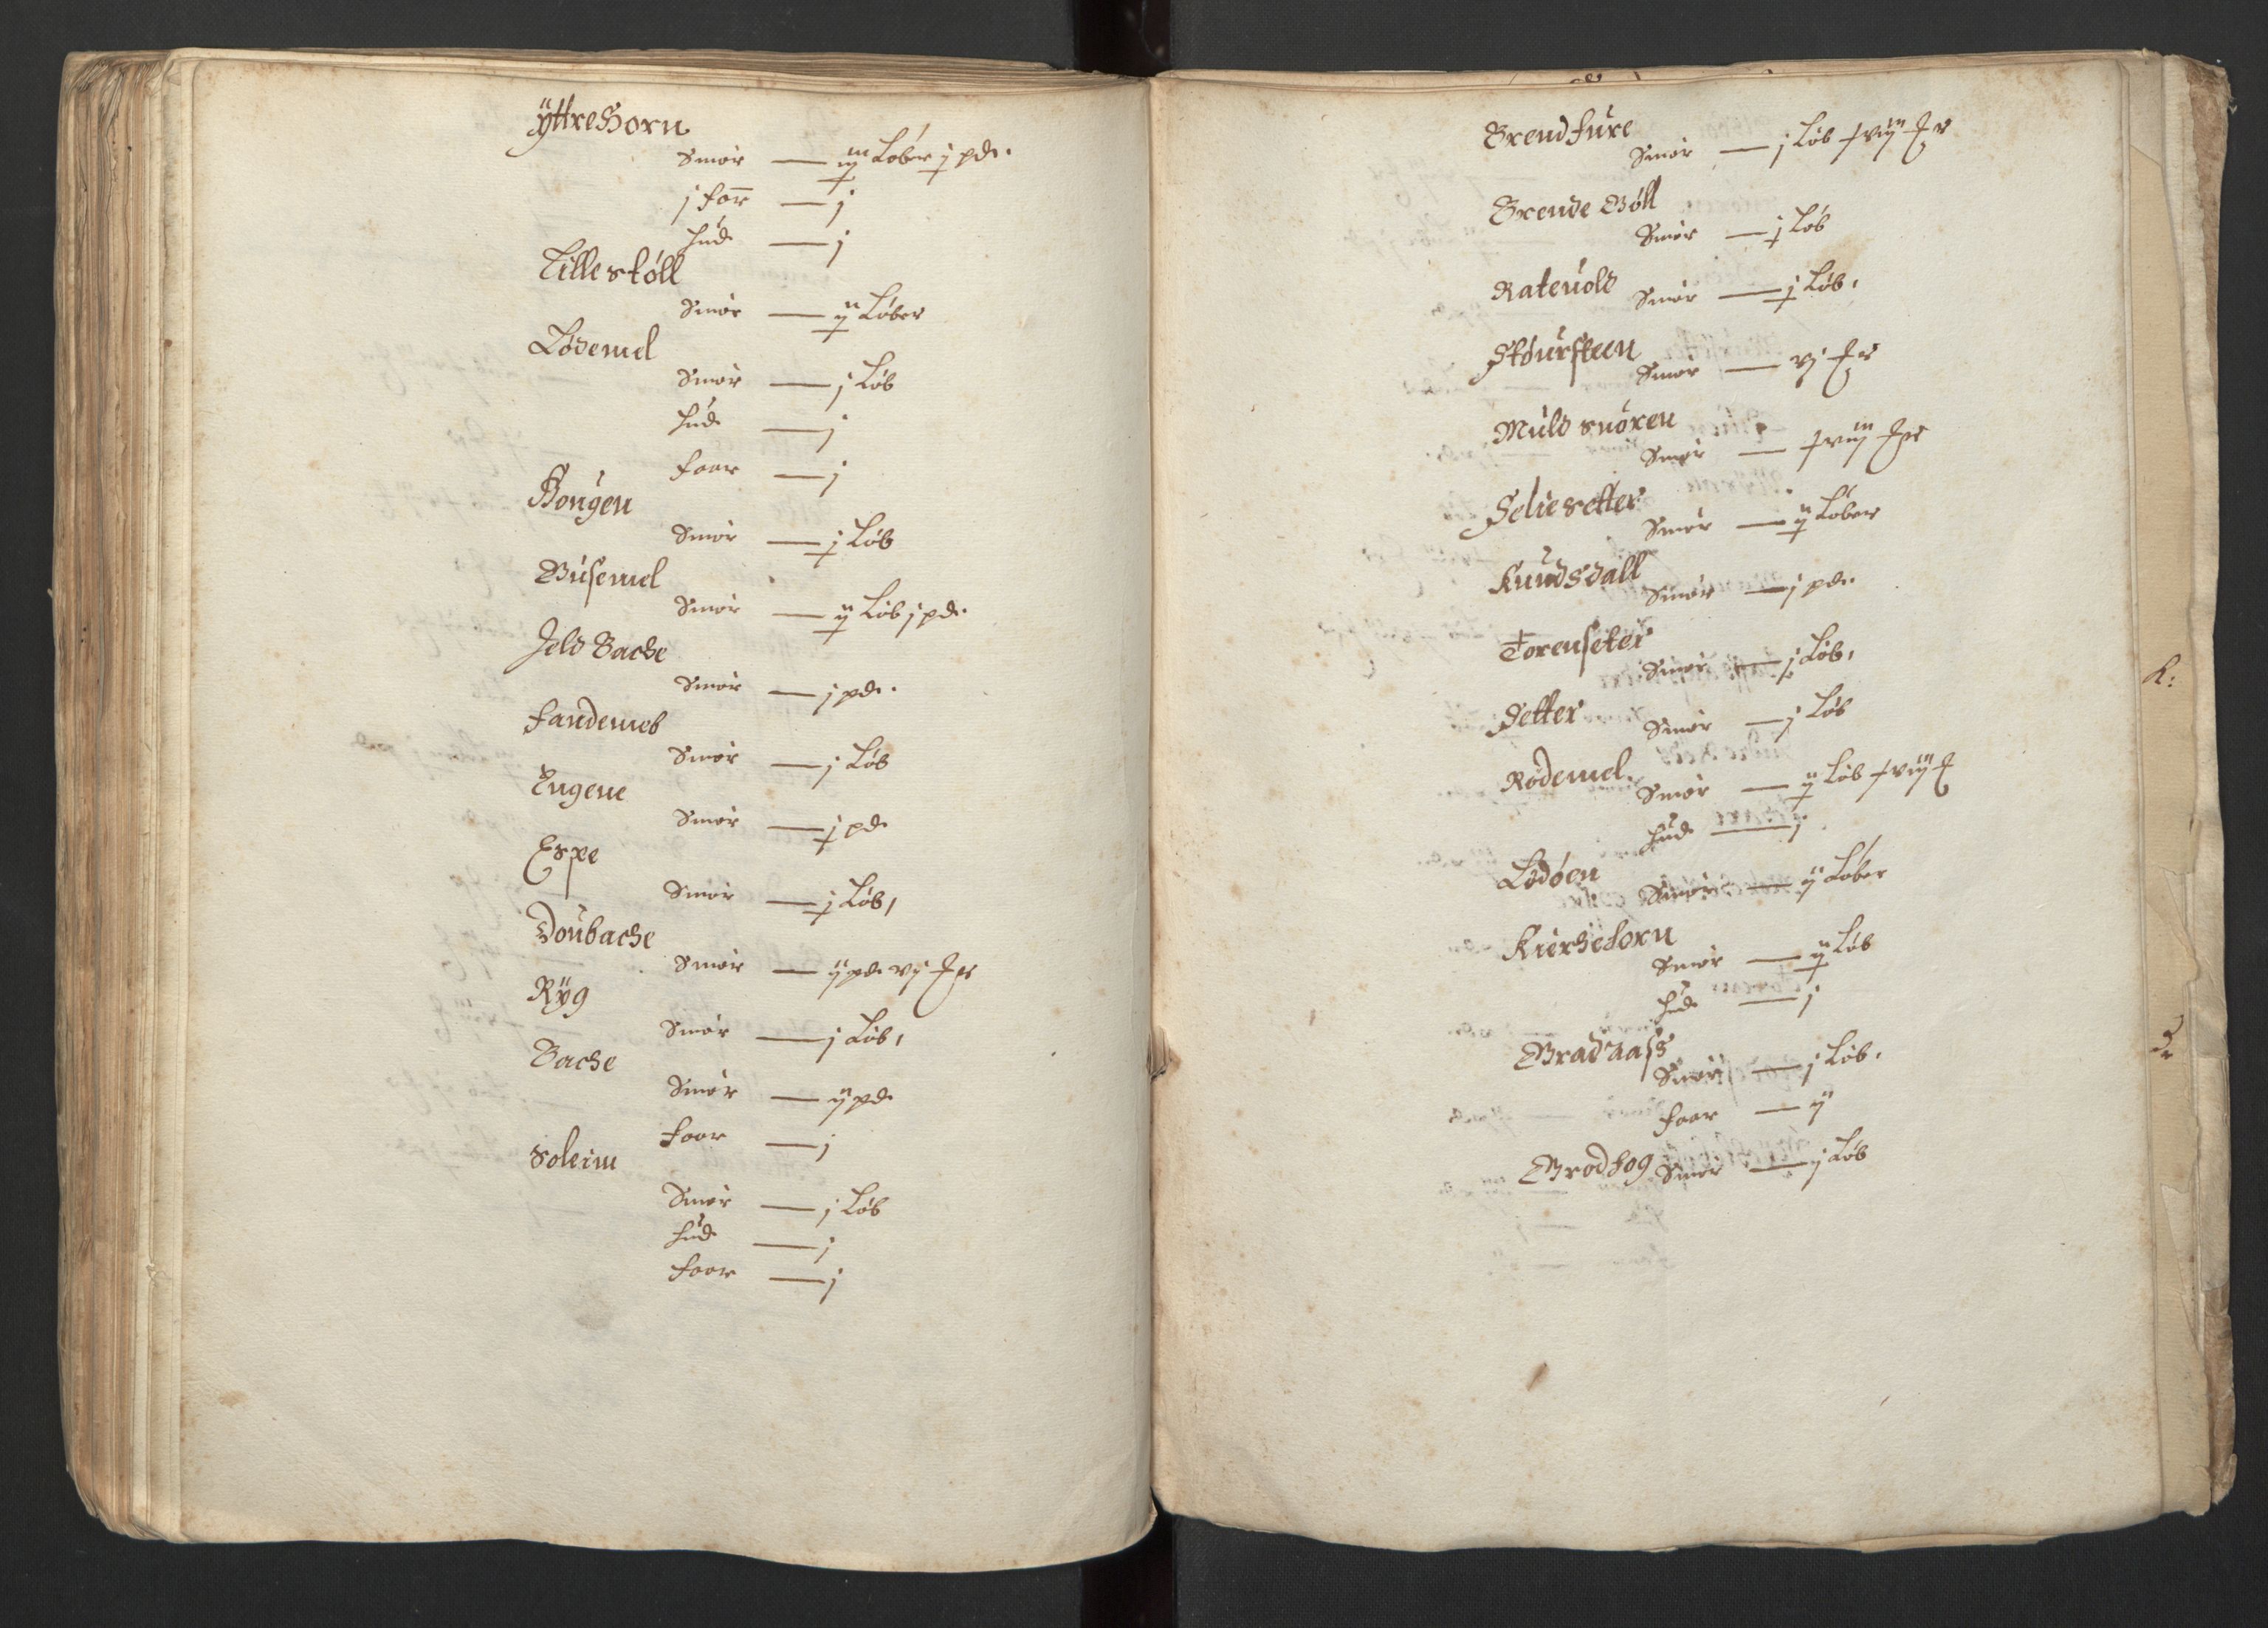 ÿttreHorn
Smør — iiij Løber j pd.
j faar — j
Hud — j
Lillestøll
Smør — ij Løber
Lødemel
Smør — j Løb
Hud — j
Faar — j
Hougen
Smør — j Løb
Busemel
Smør — ij Løb j pd.
Jeld Backe
Smør — j pd.
Fandemeb
Smør — j Løb
Engene
Smør — j pd
Espe
Smør — j Løb,
Doubacke
Smør — ij pd. vj
Ryg
Smør — j Løb,
Backe
Smør — ij pd
Faar — j
Soleim
Smør — j Løb
Hud — j
Faar — j
Brendfure
Smør — j Løb xviij
Brende Bøll
Smør — j Løb
Ratevold
Smør — j Løb,
Stoursteen
Smør — vj
Muld snøren
Smør — xviij
Seliesetter
Smør — ij Løber
Knudsdall
Smør — j pd.
Torenseter
Smør — j Løb,
Setter
Smør — j Løb
Rodemel
Smør — ij Løb xviij
Hud — j
Lodøen
Smør — ij Løber
Kirkehorn
Smør — ij Løb
Hud — j
Bradaass
Smør — j Løb.
Faar — ij
Brodhog Smør — j Løb